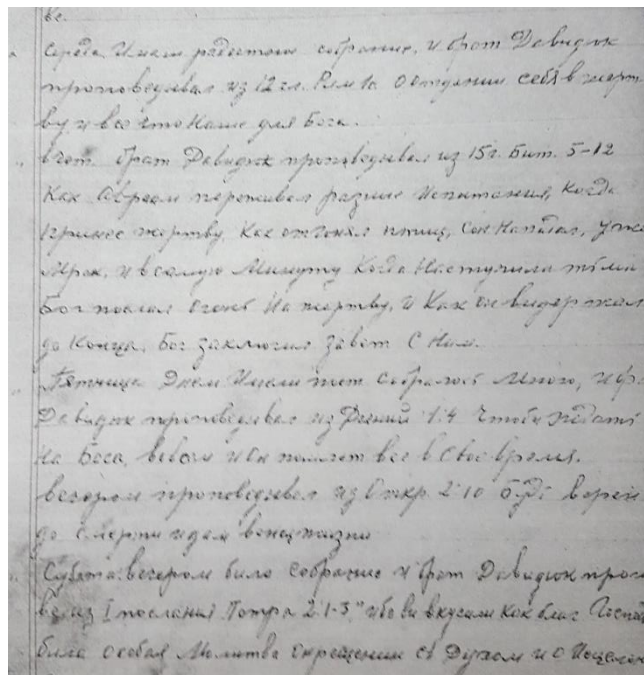 Среда. Имели радостное собрание, и брат Давидюк
проповедывал из 12 гл. Рим 1с О отдании себя в жерт
ву и все что Наше для Бога.
Чет. брат Давидюк проповедывал из 15 г. Быт. 5-12
Как Авраам переживал разные Испытания, Когда
принес жертву. Как отгонял птиц, Сон Напал, уже
Мрак, и в самую Минуту Когда Наступила тьма
Бог послал огонь На жертву, и Как он видержал
до Конца, Бог заключил завет С Ним.
Пятница Днем Имели пост собралось Много, и бра
Давидюк проповедывал из Деяний 1:4 Чтоби ждать
На Бога, и Он пошлет все в Свое время.
вечером проповедывал из Откр. 2:10 Будь верен
до смерти и дам венец жизни
Субота вечером било Собрание и брат Давидюк пропо
вед. из I послания Петра 2:1-3 "ибо ви вкусили Как благ Господ
била особая Молитва О крещении св Духом и О Исцелен